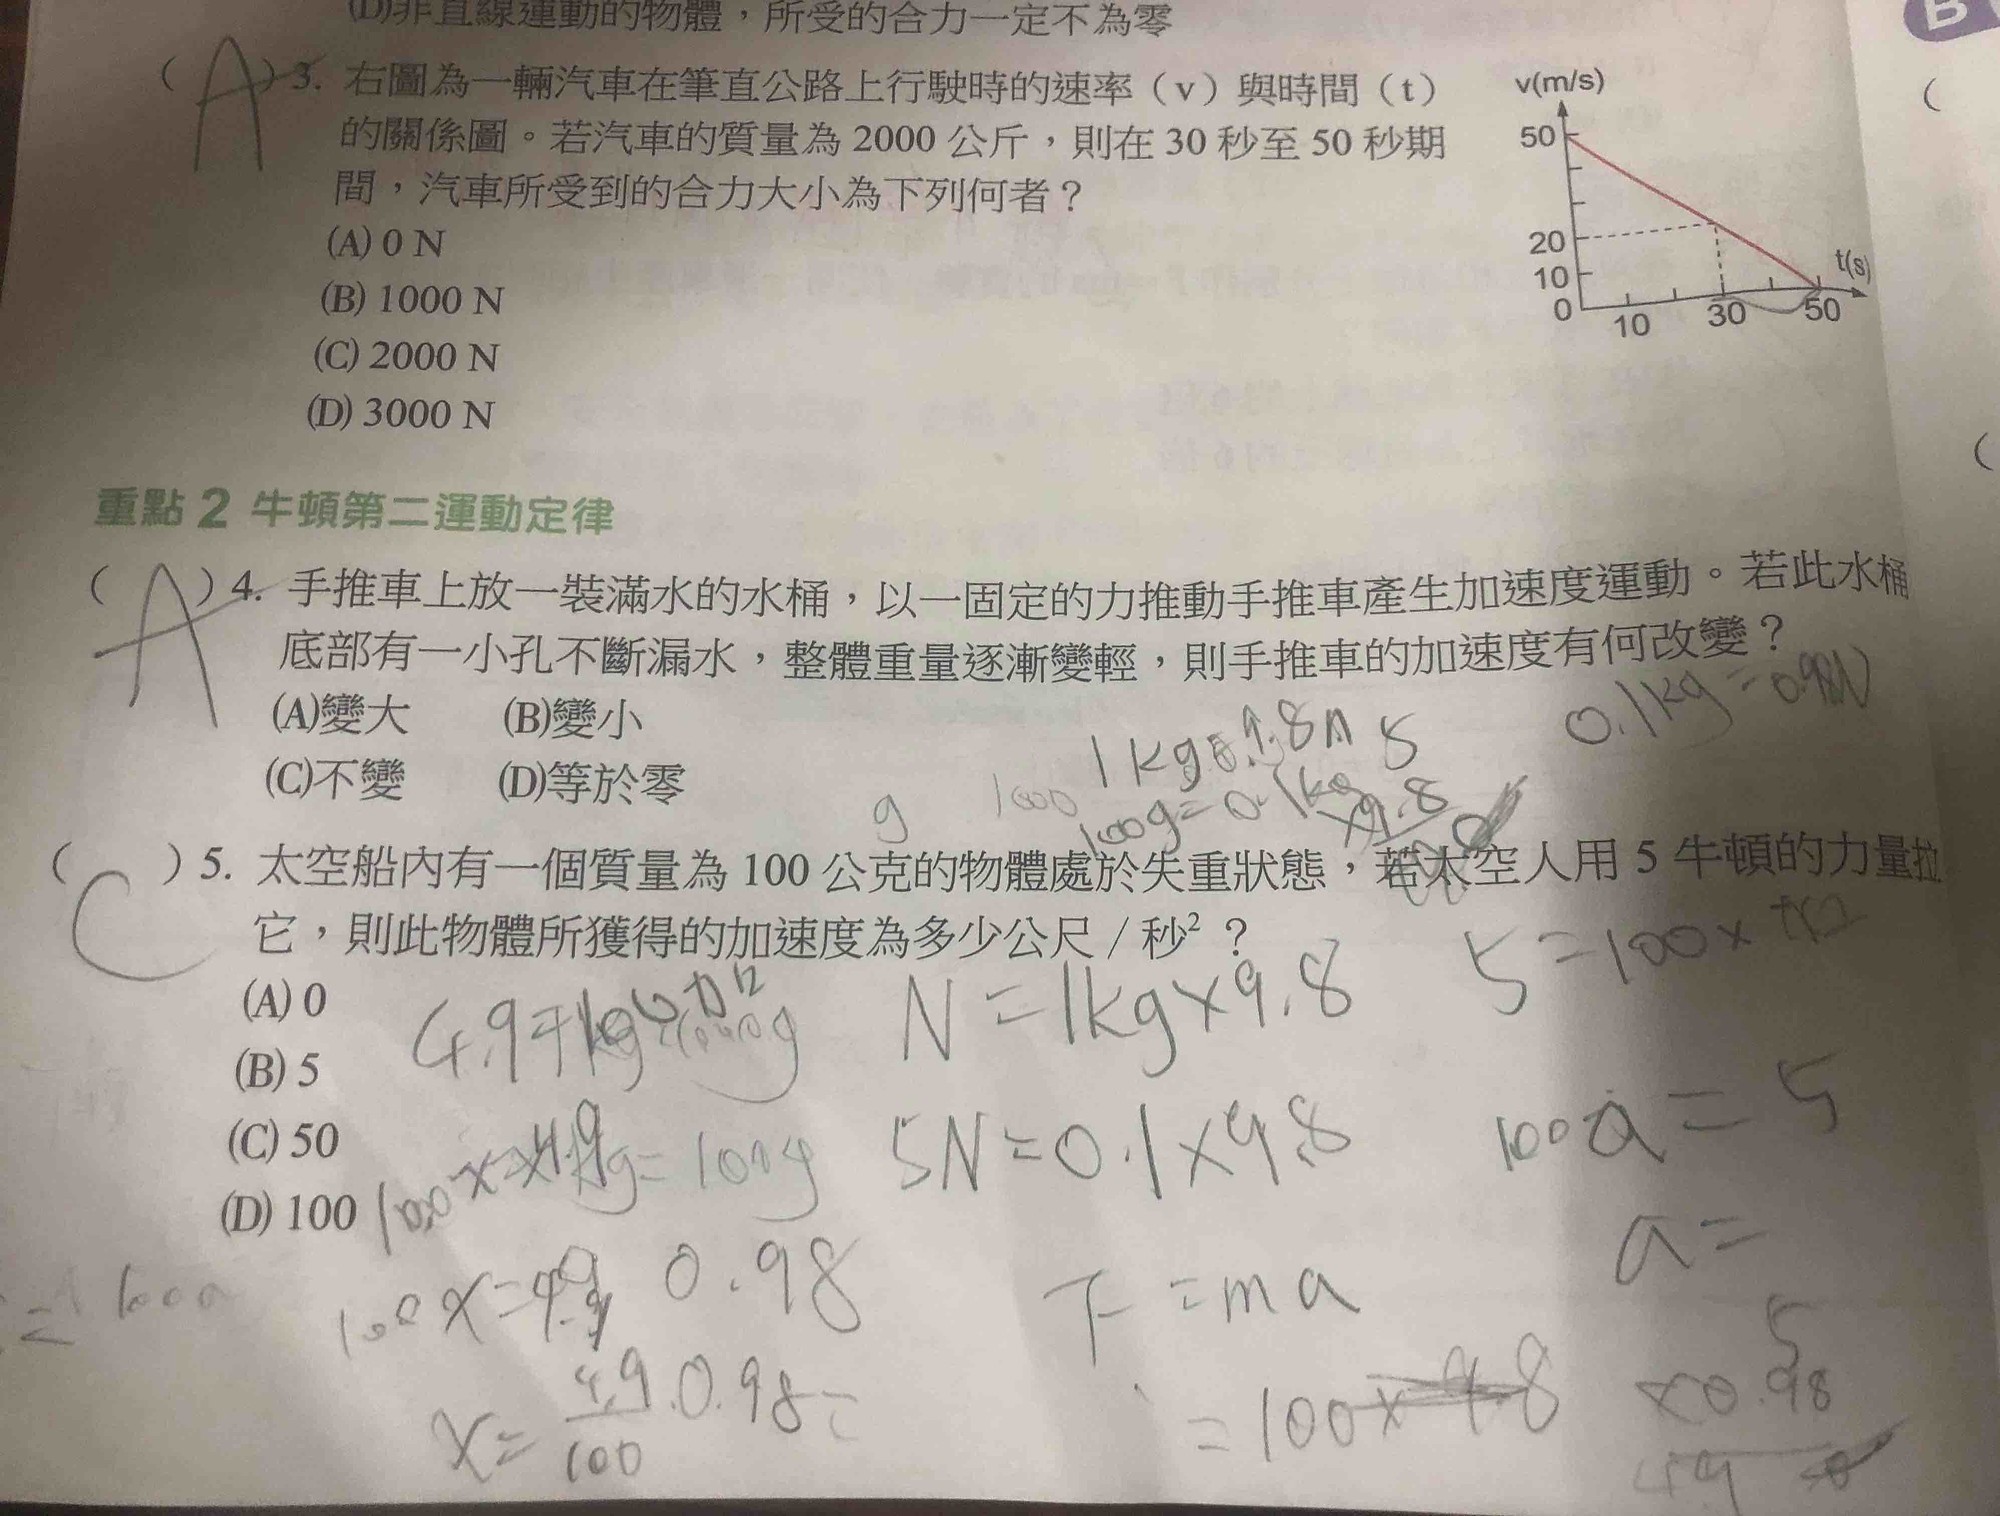 (D)非直線運動的物體,所受的合力一定不為零
B
( A ) 3. 右圖為一輛汽車在筆直公路上行駛時的速率(v)與時間(t)
的關係圖。若汽車的質量為 2000 公斤,則在 30 秒至 50 秒期
間,汽車所受到的合力大小為下列何者?
(A) 0 N
(B) 1000 N
(C) 2000 N
(D) 3000 N
v(m/s)
50
20
10
0
10
30
50
t(s)
重點 2 牛頓第二運動定律
( A ) 4. 手推車上放一裝滿水的水桶,以一固定的力推動手推車產生加速度運動。若此水桶
底部有一小孔不斷漏水,整體重量逐漸變輕,則手推車的加速度有何改變?
(A)變大 (B)變小
(C)不變 (D)等於零
0.1kg=0.98N
1kg=9.8N
5
×9.8
g 1000
100g=0.1kg
( C ) 5. 太空船內有一個質量為 100 公克的物體處於失重狀態,若太空人用 5 牛頓的力量拉
它,則此物體所獲得的加速度為多少公尺/秒²?
(A) 0
(B) 5
(C) 50
(D) 100
N=1kg×9.8
5=100×
5N=0.1×9.8
100a=5
a=
0.98
F=ma
=100×9.8
x=4.9/100
0.98=
5
×0.98